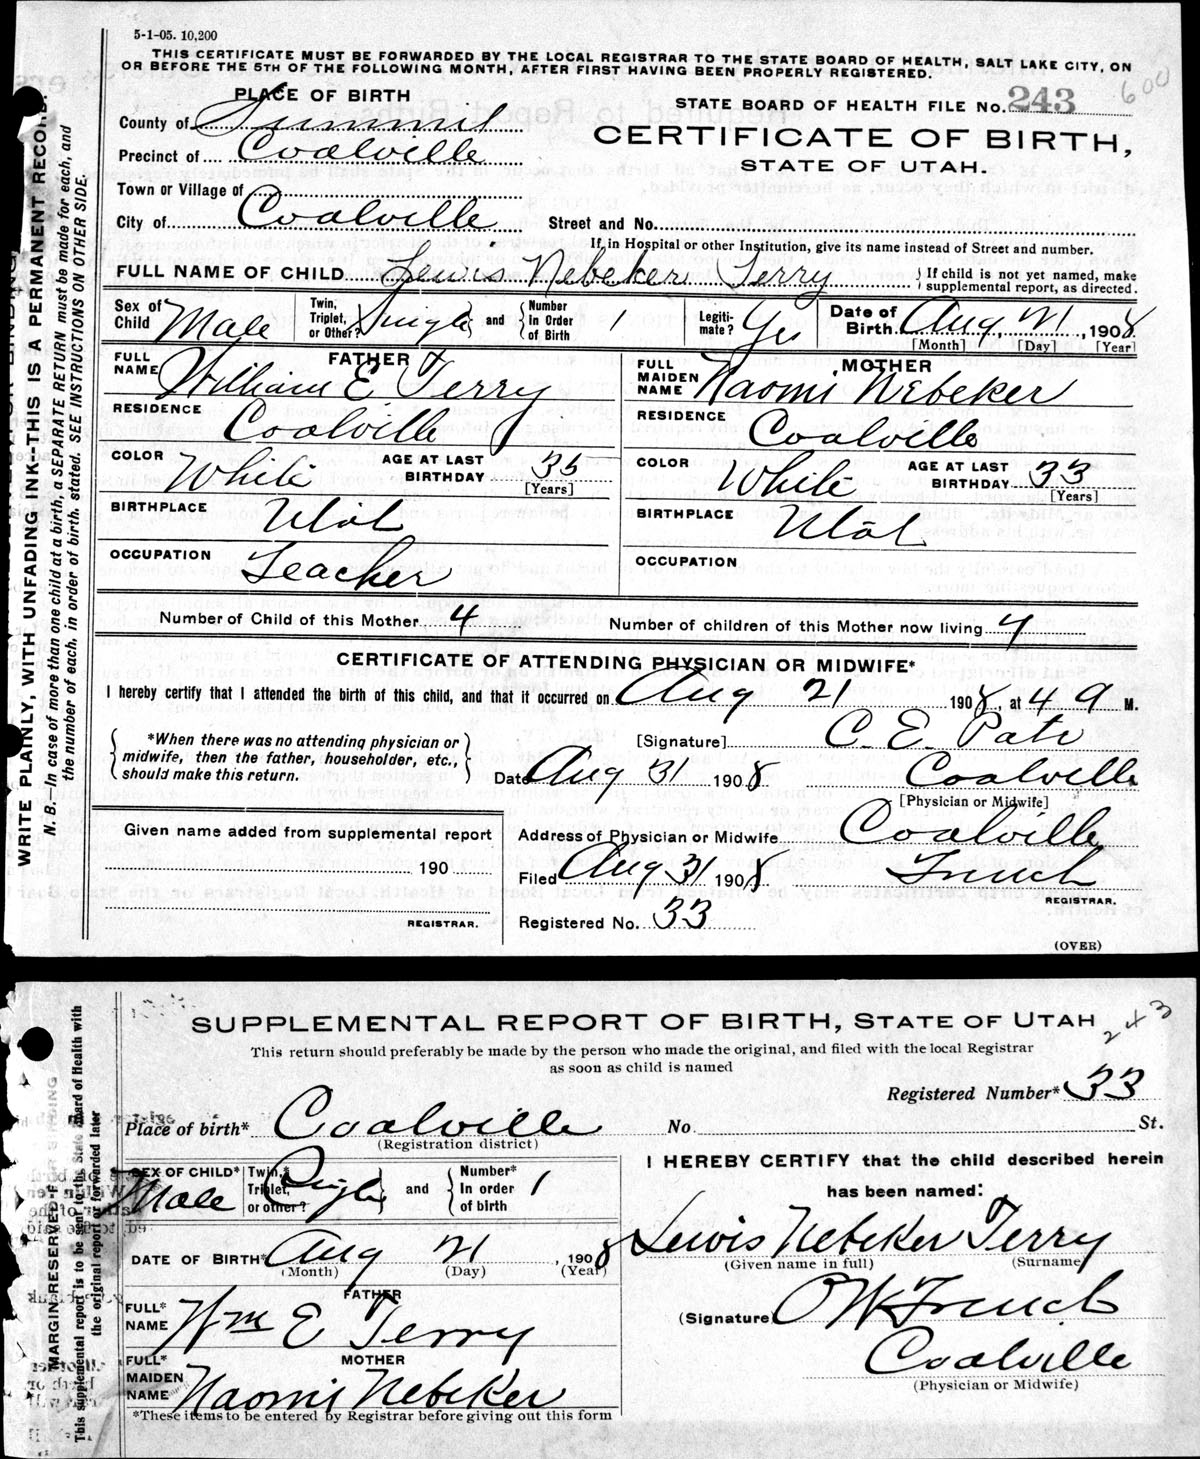 5-1-05. 10,200
THIS CERTIFICATE MUST BE FORWARDED BY THE LOCAL REGISTRAR TO THE STATE BOARD OF HEALTH, SALT LAKE CITY, ON
OR BEFORE THE 5TH OF THE FOLLOWING MONTH, AFTER FIRST HAVING BEEN PROPERLY REGISTERED.
600
PLACE OF BIRTH
STATE BOARD OF HEALTH FILE No. 243
County of Summit
CERTIFICATE OF BIRTH,
Precinct of Coalville
STATE OF UTAH.
Town or Village of
City of Coalville
Street and No.
If in Hospital or other Institution, give its name instead of Street and number.
FULL NAME OF CHILD Lewis Nebeker Terry
{ If child is not yet named, make supplemental report, as directed.
Sex of Child Male
Twin, Triplet, or Other? Single and { Number In Order of Birth 1
Legiti-mate? Yes
Date of Birth Aug, 21, 1908
[Month] [Day] [Year]
FATHER
FULL NAME William E Terry
RESIDENCE Coalville
COLOR White AGE AT LAST BIRTHDAY 35
[Years]
BIRTHPLACE Utah
OCCUPATION Teacher
MOTHER
FULL MAIDEN NAME Naomi Nebeker
RESIDENCE Coalville
COLOR White AGE AT LAST BIRTHDAY 33
[Years]
BIRTHPLACE Utah
OCCUPATION
Number of Child of this Mother 4 Number of children of this Mother now living 4
CERTIFICATE OF ATTENDING PHYSICIAN OR MIDWIFE*
I hereby certify that I attended the birth of this child, and that it occurred on Aug 21 1908, at 4 a M.
{ *When there was no attending physician or
midwife, then the father, householder, etc.,
should make this return. }
[Signature] C. E. Pate
Date Aug 31 1908 Coalville
[Physician or Midwife]
Given name added from supplemental report
190
REGISTRAR.
Address of Physician or Midwife Coalville
Filed Aug 31 1908 French
REGISTRAR.
Registered No. 33
(OVER)
WRITE PLAINLY, WITH UNFADING INK--THIS IS A PERMANENT RECORD.
N. B.—In case of more than one child at a birth, a SEPARATE RETURN must be made for each, and
the number of each, in order of birth, stated. SEE INSTRUCTIONS ON OTHER SIDE.
SUPPLEMENTAL REPORT OF BIRTH, STATE OF UTAH
243
This return should preferably be made by the person who made the original, and filed with the local Registrar
as soon as child is named
Registered Number* 33
Place of birth* Coalville No. St.
(Registration district)
SEX OF CHILD* Male
Twin,* Triplet, or other? Single } and { Number* In order of birth 1
DATE OF BIRTH* Aug 21, 1908
(Month) (Day) (Year)
FATHER
FULL* NAME Wm E Terry
MOTHER
FULL* MAIDEN NAME Naomi Nebeker
*These items to be entered by Registrar before giving out this form
I HEREBY CERTIFY that the child described herein
has been named:
Lewis Nebeker Terry
(Given name in full) (Surname)
(Signature) French
Coalville
(Physician or Midwife)
This supplemental report is to be sent to the State Board of Health with
the original report or forwarded later